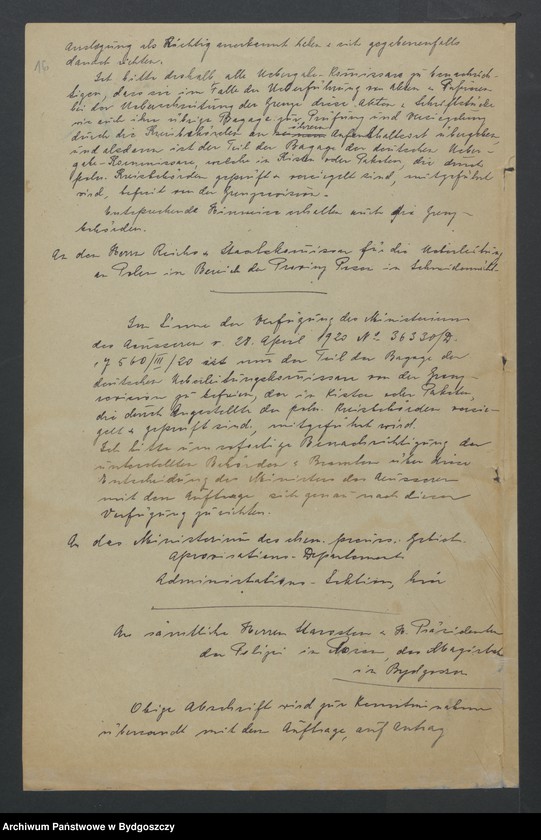 16.
Auslegung als Richtig anerkannt haben u. sich gegebenenfalls
danach richten.
Ich bitte deshalb, alle Uebergabe-Kommissare zu benachrich-
tigen, dass sie im Falle der Ueberführung von Akten u. Papieren
bei der Ueberschreitung der Grenze diese Akten u. Schriftstücke
wie auch ihre übrige Bagage zur Prüfung und Versiegelung
durch die Kreisbehörden an ihrem Aufenthaltsort übergeben
und alsdann ist der Teil der Bagage der deutschen Ueber-
gabe-Kommissare, welche in Kisten oder Paketen, die durch
poln. Kreisbehörden geprüft u. versiegelt sind, mitgeführt
wird, befreit von der Grenzrevision.
Entsprechende Hinweise erhalten auch die Grenz-
behörden.
An den Herrn Reichs u. Staatskommissar für die Ueberleitung
an Polen im Bereich der Provinz Posen in Schneidemühl.
Im Sinne der Verfügung des Ministeriums
des Aeusseren v. 28. April 1920 No 36330/D.
7560/III/20 ist nur der Teil der Bagage der
deutschen Ueberleitungskommissare von der Grenz-
revision zu befreien, der in Kisten oder Paketen,
die durch Angestellte der poln. Kreisbehörden versie-
gelt u. geprüft sind, mitgeführt wird.
Ich bitte um sofortige Benachrichtigung der
unterstellten Behörden u. Beamten über diese
Entscheidung des Ministers des Aeusseren
mit dem Auftrage, sich genau nach dieser
Verfügung zu richten.
An das Ministerium des ehem. preuss. Gebiets
Aprovisations-Departement
Administrations-Sektion, hier
An sämtliche Herren Starosten u. H. Präsidenten
der Polizei in Posen, des Magistrats
in Bydgoszcz
Obige Abschrift wird zur Kenntnisnahme
übersandt mit dem Auftrage, auf Antrag
Archiwum Państwowe w Bydgoszczy